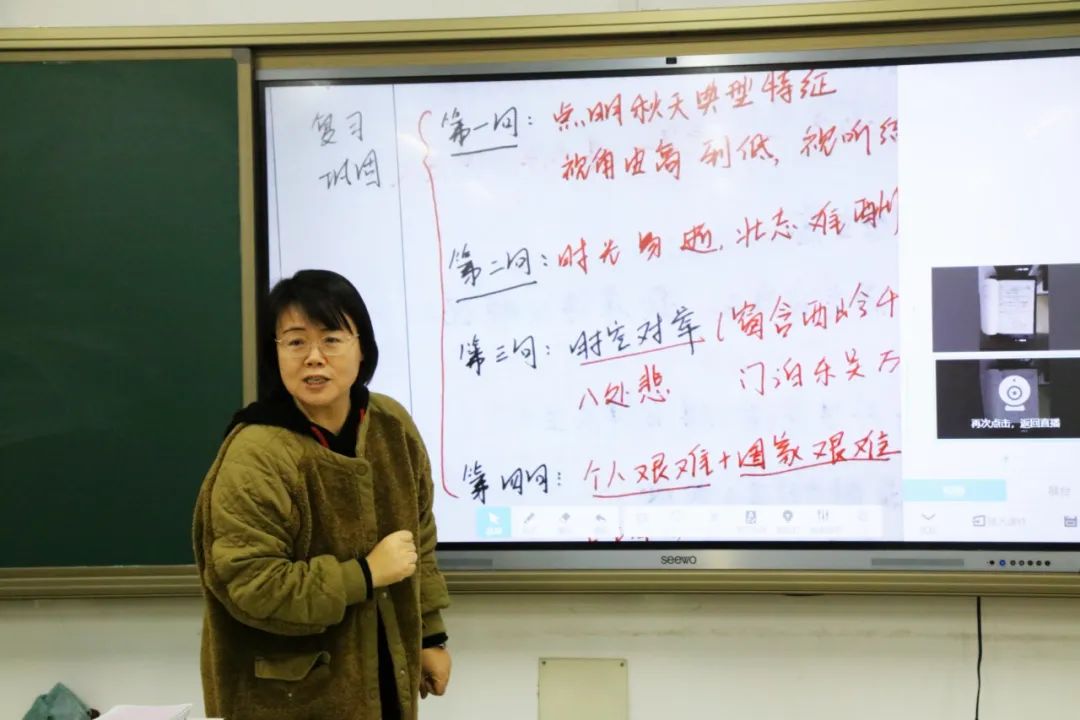 复习
巩固
第一问：点明秋天典型特征
视角由高到低，视听结
第二问：时光易逝，壮志难酬
第三问：时空对举（窗含西岭千
八处悲 门泊东吴万
第四问：个人艰难+国家艰难
再次点击，返回直播
seewo